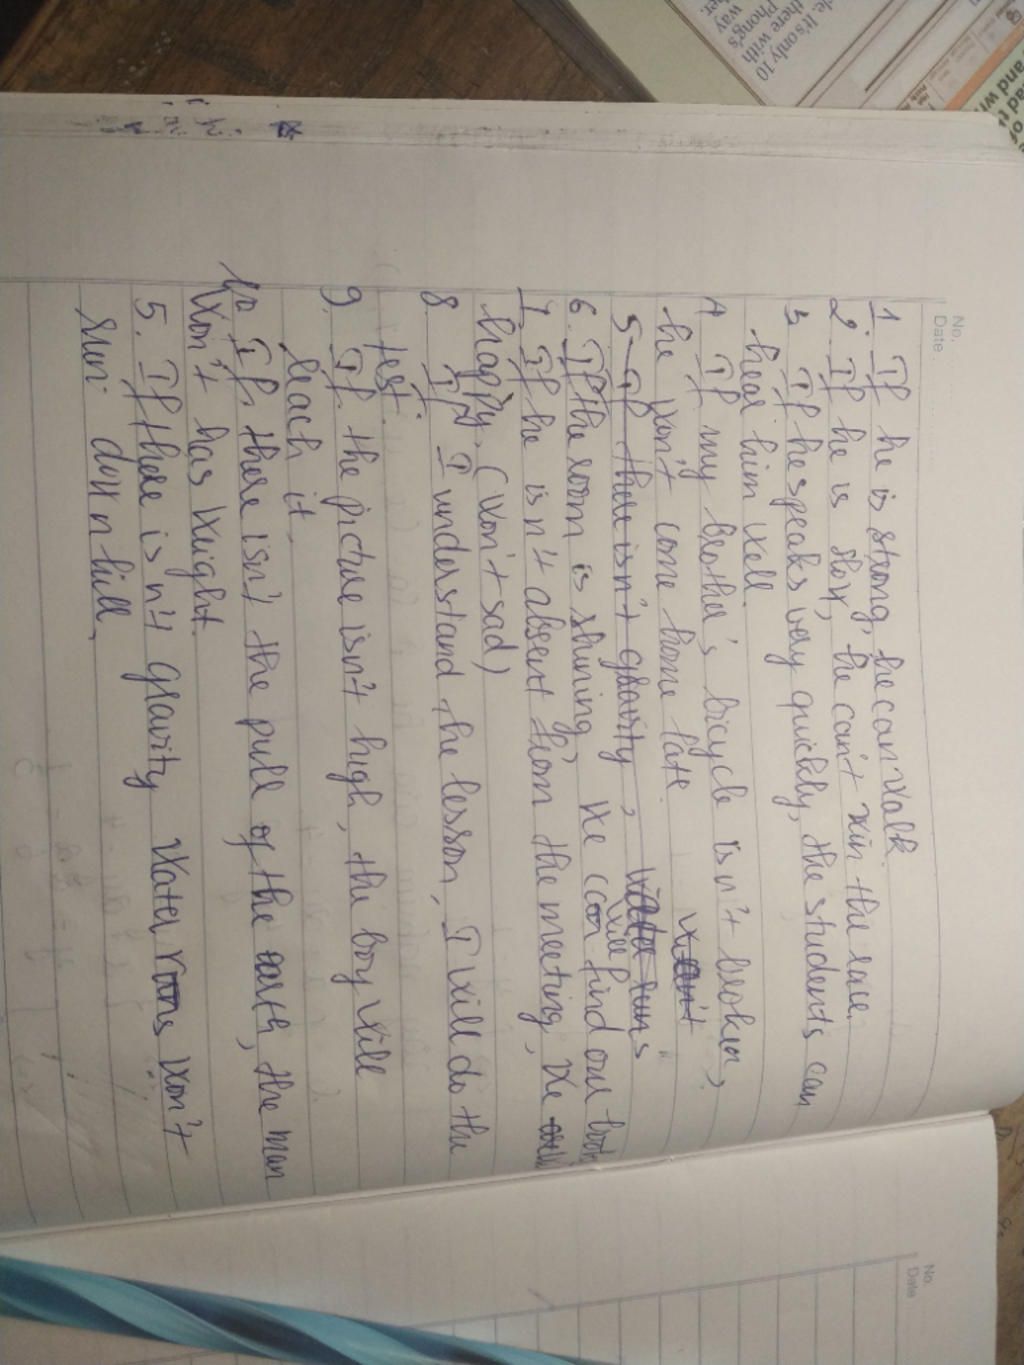 No.
Date
1. If he is strong, he can walk
2. If he is slow, he can't win the race.
3 If he speaks very quickly, the students can
hear him well.
4 If my brother's bicycle isn't broken,
he won't come home late.
5 If there isn't gravity, water runs
6. If the room is shining, we can find our book
will
7. If he isn't absent from the meeting, we
happy. (won't sad)
8. If I understand the lesson, I will do the
test.
9. If the picture isn't high, the boy will
reach it.
10 If there isn't the pull of the earth, the man
won't has weight.
5. If there isn't gravity water runs won't
run down hill.
No.
Date
de. It's only 10
there with
Phong's
way
her.
ad
and wr